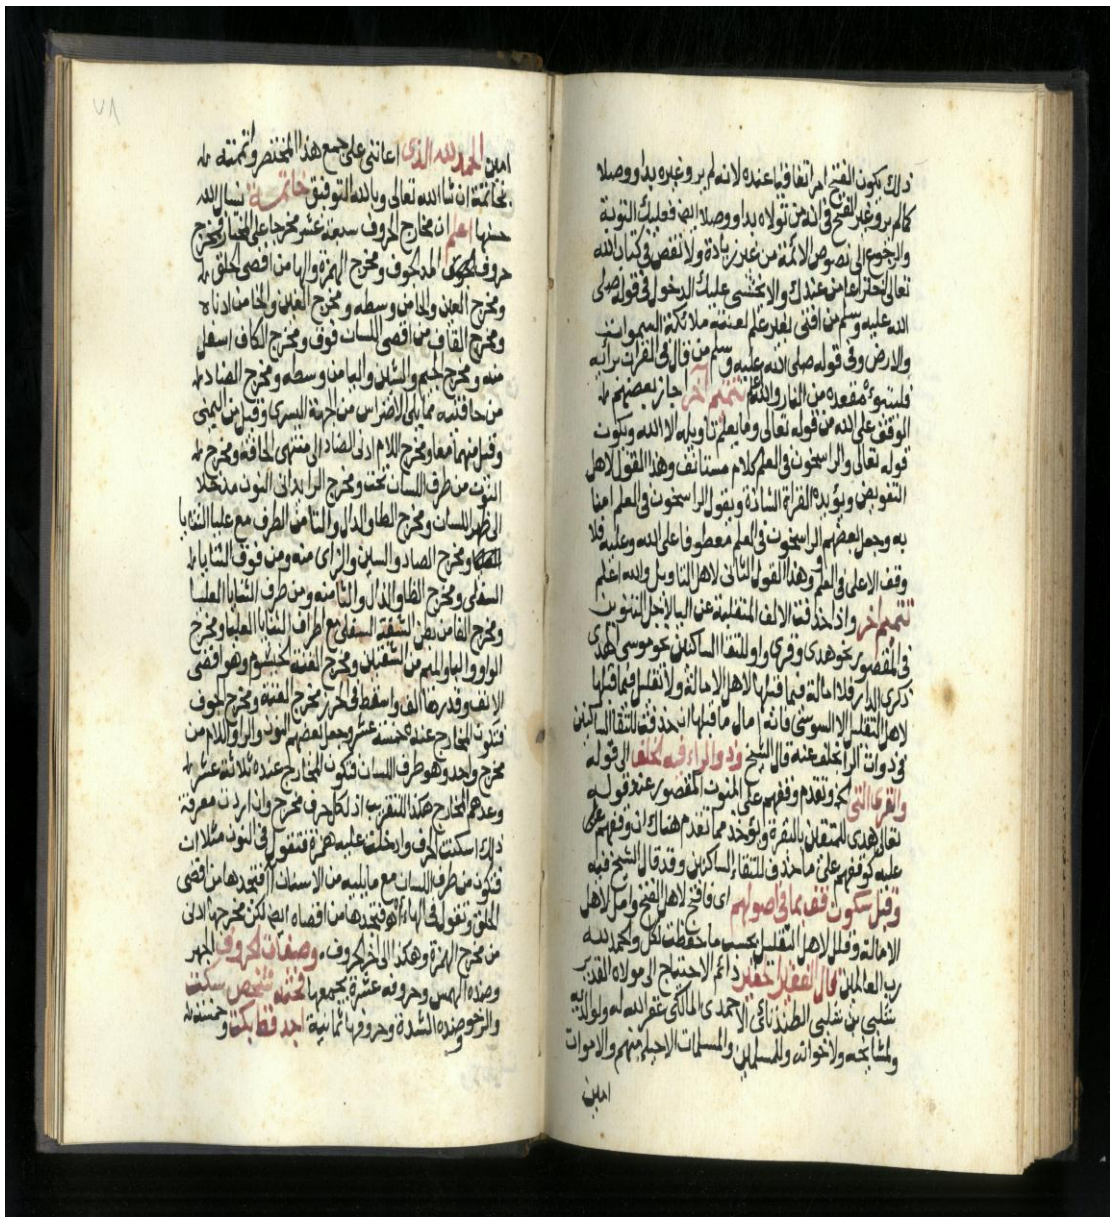 ذلك يكون الفتح امرا متفقا عنده لانه لم يرو غيره بدا ووصلا
كما لم يرو غير الفتح في الله من تولاه بدا ووصلا ايضا فعليك التوبة
والرجوع الى نصوص الائمة من غير زيادة ولا نقص في كتاب الله
تعالى اختراعا من عندك والا يخشى عليك الدخول في قوله صلى
الله عليه وسلم من افتى بغير علم لعنته ملائكة السموات
والارض وفي قوله صلى الله عليه وسلم من قال في القران برأيه
فليتبوء مقعده من النار والله اعلم تتميم آخر جاز بعضهم
الوقف على الله من قوله تعالى وما يعلم تاويله الا الله ويكون
قوله تعالى والراسخون في العلم كلام مستانف وهذا القول لاهل
التفويض ويؤيده القراة الشاذة ويقول الراسخون في العلم امنا
به وجعل بعضهم الراسخون في العلم معطوفا على الله وعليه فلا
وقف الا على في العلم وهذا القول الثاني لاهل التاويل والله اعلم
تتميم اخر واذا حذفت الالف المنقلبة عن اليا لاجل التنوين
في المقصور نحو هدى وقرى او للتقا الساكنين نحو موسى الهدى
ذكرى الدار فلا امالة فيما قبلها لاهل الامالة ولا تقليل فيما قبلها
لاهل التقليل الا السوسي فانه امال ما قبلها ان حذفت للتقا الساكنين
في ذوات الرا بخلف عنه قال الشيخ وذو الراء فيه الخلف الى قوله
والقرى التي الخ وتقدم وقفهم على المنون المقصور عند قوله
تعالى هدى للمتقين بالبقرة ويؤخذ مما تقدم هناك ان وقفهم على
عليه كوقفهم على ما حذف للتقاء الساكنين وقد قال الشيخ فيه
وقبل سكون قف بما في اصولهم اي فافتح لاهل الفتح وامل لاهل
الامالة وقلل لاهل التقليل بحسب ما حفظت لكل والحمد لله
رب العالمين قال الفقير الحقير دائم الاحتياج الى مولاه القدير
شلبي بن شلبي الطندتائي الاحمدي المالكي غفر الله له ولوالديه
ولمشايخه ولاخوانه وللمسلمين والمسلمات الاحياء منهم والاموات
امين
٧٨
امين الحمد لله الذي اعانني على جمع هذا المختصر وتممته
بخاتمة ان شا الله تعالى وبالله التوفيق خاتمة نسال الله
حسنها اعلم ان مخارج الحروف سبعة عشر مخرجا على المختار فمخرج
حروف المد الجوف ومخرج الهمزة والها من اقصى الحلق
ومخرج العين والحا من وسطه ومخرج الغين والخا من ادناه
ومخرج القاف من اقصى اللسان فوق ومخرج الكاف اسفل
منه ومخرج الجيم والشين واليا من وسطه ومخرج الضاد
من حافته مما يلي الاضراس من الجهة اليسرى وقيل من اليمنى
وقيل منهما معا ومخرج اللام ادنى الضاد الى منتهى الحافة ومخرج
النون من طرف اللسان تحت ومخرج الرا يداني النون مدخلا
الى ظهر اللسان ومخرج الطا والدال والتا من الطرف مع عليا الثنايا
ومخرج الصاد والسين والزاي منه ومن فوق الثنايا
السفلى ومخرج الظا والذال والثا منه ومن طرف الثنايا العليا
ومخرج الفا من بطن الشفة السفلى مع اطراف الثنايا العليا ومخرج
الواو والبا والميم من الشفتين ومخرج الغنة الخيشوم وهو اقصى
الانف وقدرها الف واسقط في الحرز مخرج الغنة ومخرج الجوف
فتكون المخارج عنده خمسة عشر وجعل بعضهم النون والرا واللام من
مخرج واحد وهو طرف اللسان فتكون المخارج عنده ثلاثة عشر
وعدهم المخارج هكذا للتقريب اذ لكل حرف مخرج وان اردت معرفة
ذلك اسكنت الحرف وادخلت عليه همزة فتقول في النون مثلا ان
فتكون من طرف اللسان مع ما يليه من الاسنان فتجدها من اقصى
الحلق وتقول في الهاء اه فتجدها من اقصاه ايضا لكن مخرجها ادنى
من مخرج الهمزة وهكذا الى اخر الحروف وصفات الحروف الجهر
وضده الهمس وحروفه عشرة يجمعها فحثه شخص سكت
والرخو وضده الشدة وحروفها ثمانية اجد قط بكت وخمسة